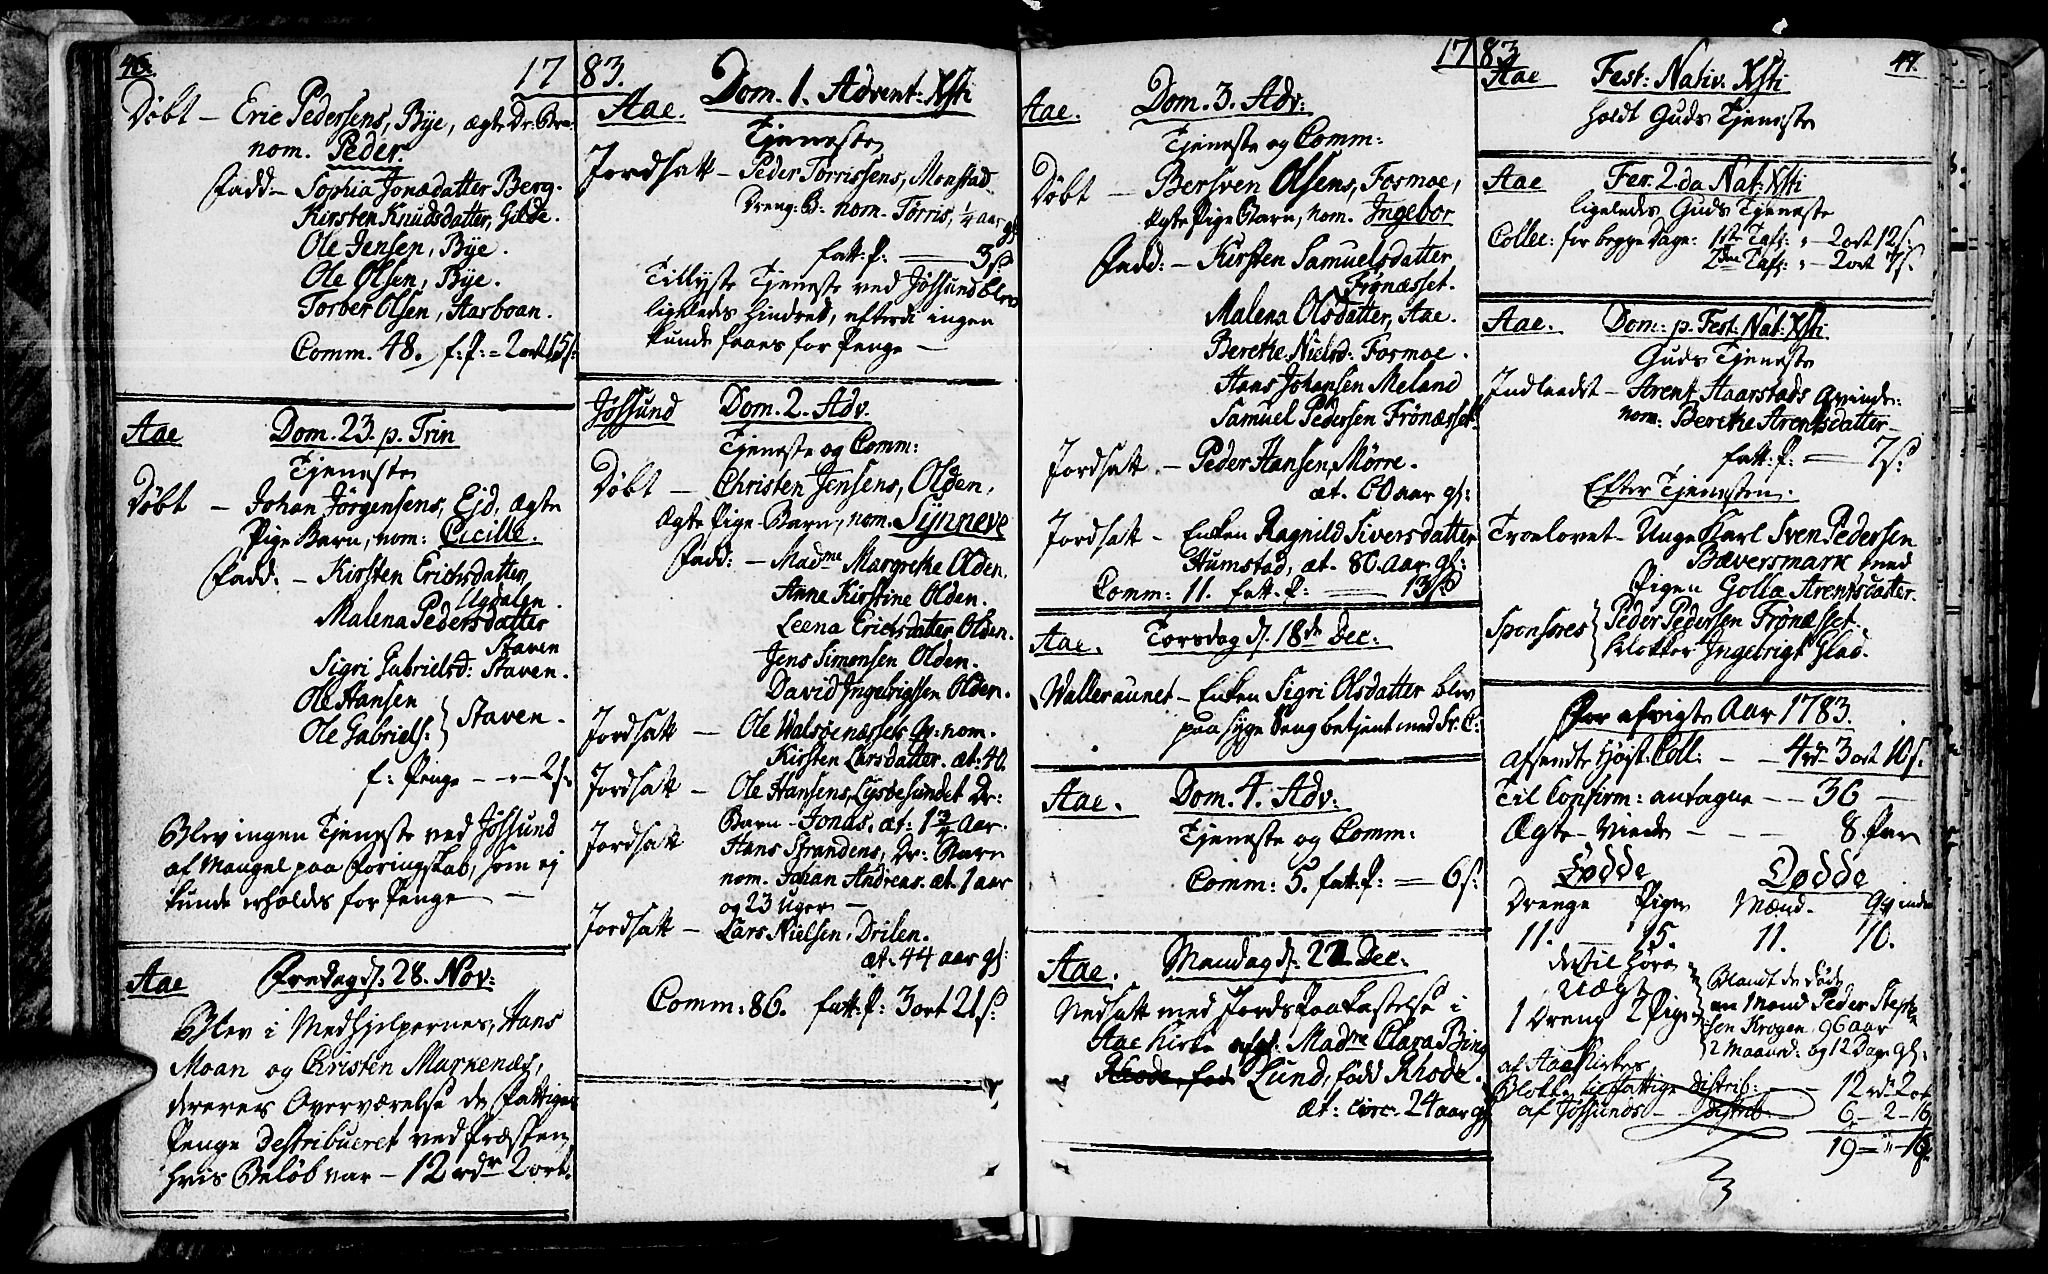 46.
1783.
Døbt — Eric Pedersens, Bye, ægte Dr: Barn
nom. Peder.
Fadd — Sophia Jonædatter Berg.
Kirsten Knudsdatter, Gilde.
Ole Jensen, Bye.
Ole Olsen, Bye.
Torber Olsen, Aarboan.
Comm. 48. f: P: = 2 ort 15 s:
Aae Dom. 23. p. Trin
Tjeneste
Døbt — Johan Jørgensens, Eid, ægte
Pige Barn, nom: Cicille.
Fadd: — Kirsten Erichsdatter
Ugdalen.
Malena Pedersdatter
Staven
Sigri Gabrielsd: Staven.
Ole Hansen
Ole Gabriels: } Staven.
f: Penge — „ — 2 s:
Blev ingen Tjeneste ved Jøssund
af Mangel paa Foringskab, som ej
kunde erholdes for Penge —
Aae Fredag d. 28. Nov:
Blev i Medhjelpernes, Hans
Moan og Christen Markenæs,
dereres Overværelse de Fattiges
Penge Destribueret ved Præsten,
hvis Beløb var — 12 rdr 2 ort.
Aae. Dom. 1. Advent: Xsti
Tjeneste
Jordsatt — Peder Tørrissens, Monstad
Dreng: B: nom. Tørris, 1/4 aar gl:
fatt: P: — 3 s
Tillyste Tjeneste ved Jøssund blev
ligeledes hindred, efterdi ingen
kunde faaes for Penge —
Jøssund Dom. 2. Adv.
Tjeneste og Comm:
Døbt — Christen Jensens, Olden,
ægte Pige-Barn, nom. Synneve
Fadd: — Madme Margrethe Olden.
Anna Kirstine Olden.
Leena Erichsdatter Olden.
Jens Simonsen Olden.
David Ingebrigtsen Olden.
Jordsatt — Ole Walsøenæssets Qv: nom.
Kirsten Larsdatter. æt: 40.
Jordsatt — Ole Hansens, Lysøesundet Dr:
Barn — Jonas. æt: 1 3/4 Aar.
Jordsatt Hans Strandens, Dr: Barn
nom. Johan Andreas. æt. 1 aar
og 23 Uger —
Jordsatt — Lars Nielsen, Drilen.
æt. 44 aar gl:
Comm: 86. fatt: P: 3 ort 21 s:
1783
47.
Aae. Dom. 3. Adv:
Tjeneste og Comm:
Døbt — Bersven Olsens, Fosmoe,
ægte Pige Barn, nom. Ingebor
Fadd: — Kirsten Samuelsdatter
Frønæsset.
Malena Olsdatter, Aae.
Berethe Nielsd: Fosmoe.
Hans Johansen Meland
Samuel Pedersen Frønæsset
Jordsatt. — Peder Hansen, Mørre.
æt. 60 aar gl:
Jordsatt — Enken Ragnild Siversdatter
Humstad, æt. 80. aar gl:
Comm: 11. fatt. P: — 13 s
Aae. Torsdag d. 18de Dec:
Walleraunet — Enken Sigri Olsdatter blev
paa syge Seng betjent med Sr. C:
Aae. Dom. 4. Adv:
Tjeneste og Comm:
Comm: 5. fatt: P: = 6 s:
Aae. Mandag d: 22 Dec:
Nedsatt med Jords Paakastelse i
Aae Kirke afgl. Madme Clara Bing
Lund, fødd Rhode.
æt: circ: 24 aar gl:
Aae Fest: Nativ. Xsti
holdt Guds Tjeneste
Aae Fer. 2da Nat: Xsti
ligeledes Guds Tjeneste
Collec: for begge Dage: 1ste Tafl: „ — 2 ort 12 s:
2den Tafl: „ — 2 ort 7 s.
Aae. Dom: p. Fest: Nat: Xsti
Guds Tjeneste
Indleedt — Arent Haarstads Qvinde:
nom: Berethe Arentsdatter —
fatt: P: — 7 s:
Efter Tjenesten.
Troelovet — Unge Karl Sven Pedersen
Bæversmark med
Pigen Golla Arentsdatter.
Sponsores { Peder Pedersen Frønæsset.
Klokker Ingebrigt Glad.
For afvigte Aar 1783.
Afsendte Højst: Coll: — — 4 rd 3 ort 10 s.
Til Confirm: antagne — — 36 —
Ægte-Viede — — — 8. Par
Fødde Dødde
Drenge Piger Mænd. Qvinder
11. — 15. 11. 10.
der til hører
Uægt
1 Dreng 2 Piger
Blandt de døde
en Mand Peder Steph
sen Krogen, 96 aar
2 Maaned: og 12 Dage gl:
af Aae Kirkes
Blokke til fattige Distrib: — 12 rd 2 ort
af Jøssunds — Distrib: — 6 — 2 — 16
19 = „ — 16